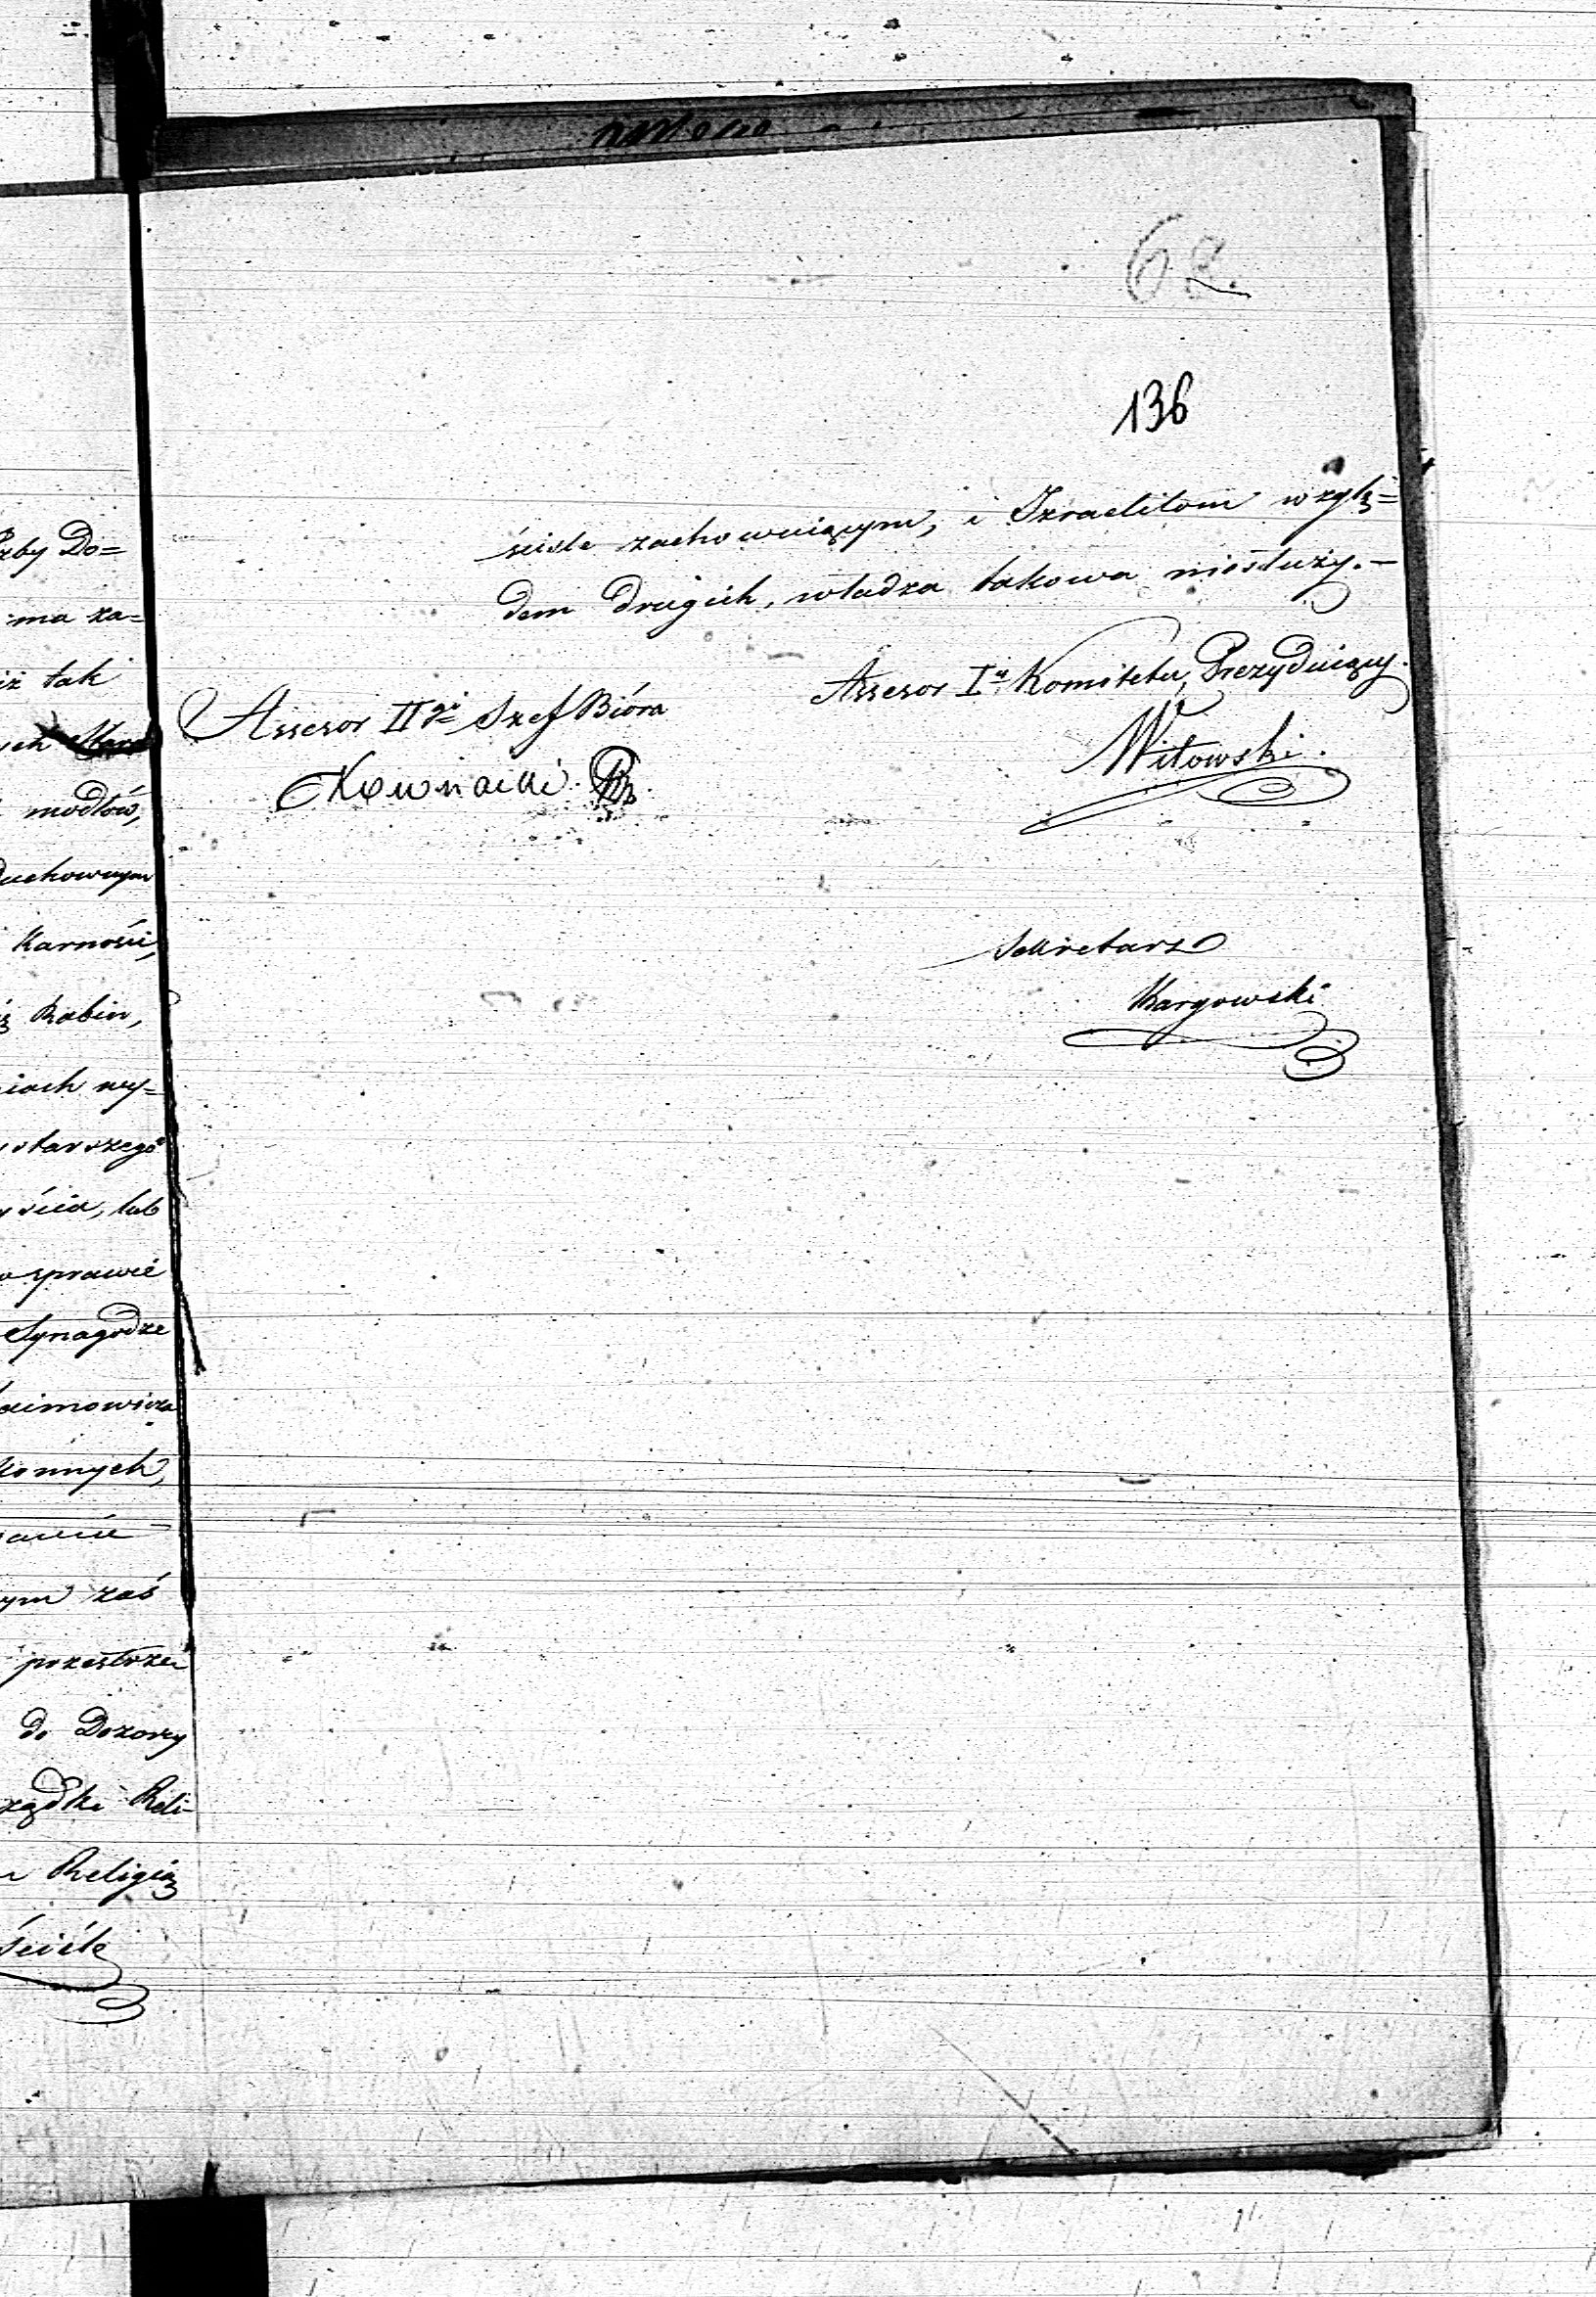 62
136
ściśle zachowuiącym, i Izraelitom wzglę=
dem drugich, władza takowa niesłuży.-
Assesor Iy Komitetu, Prezyduiący.
Witowski.
Assesor IIgi Szef Bióra
Kownacki.
Sekretarz
Kargowski
zby Do=
ma za=
iż tak
ych
modłów,
duchownym
Karności,
Rabin,
iach wy=
starszego
ścia, lub
sprawie
Synagodze
aimowicza
onnych,
ym zaś
przestrzeń
do Dozory
ządku Reli-
Religią
ściśle